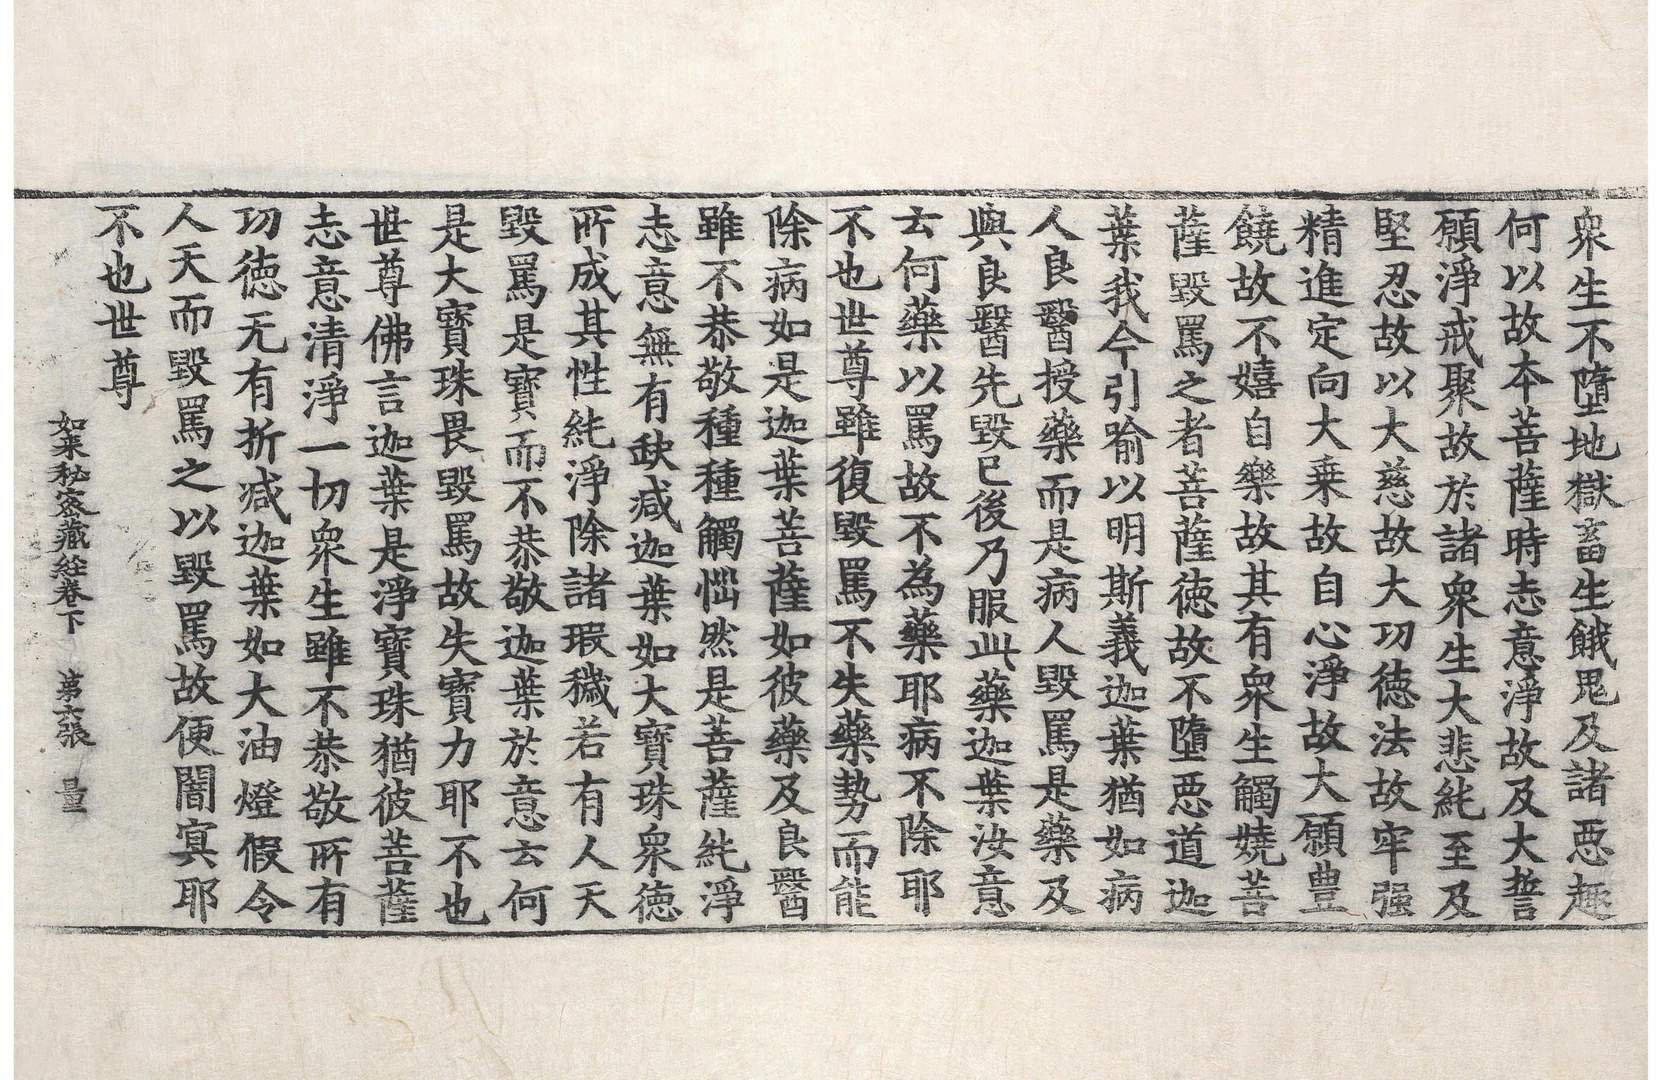 衆生不墮地獄畜生餓鬼及諸悪趣
何以故夲菩薩時志意淨故及大誓
願淨戒聚故於諸衆生大悲純至及
堅忍故以大慈故大功徳法故牢强
精進定向大乗故自心淨故大願豊
饒故不嬉自樂故其有衆生觸嬈菩
薩毀罵之者菩薩徳故不墮悪道迦
葉我今引喻以明斯義迦葉猶如病
人良醫授藥而是病人毀罵是藥及
與良醫先毀已後乃服此藥迦葉汝意
云何藥以罵故不為藥耶病不除耶
不也世尊雖復毀罵不失藥勢而能
除病如是迦葉菩薩如彼藥及良醫
雖不恭敬種種觸惱然是菩薩純淨
志意無有缺减迦葉如大寶珠衆徳
所成其性純淨除諸瑕穢若有人天
毀罵是寶而不恭敬迦葉於意云何
是大寶珠畏毀罵故失寶力耶不也
世尊佛言迦葉是淨寶珠猶彼菩薩
志意清淨一切衆生雖不恭敬所有
功徳无有折减迦葉如大油燈假令
人天而毀罵之以毀罵故便闇㝠耶
不也世尊
如来秘密藏經卷下 第六張 量